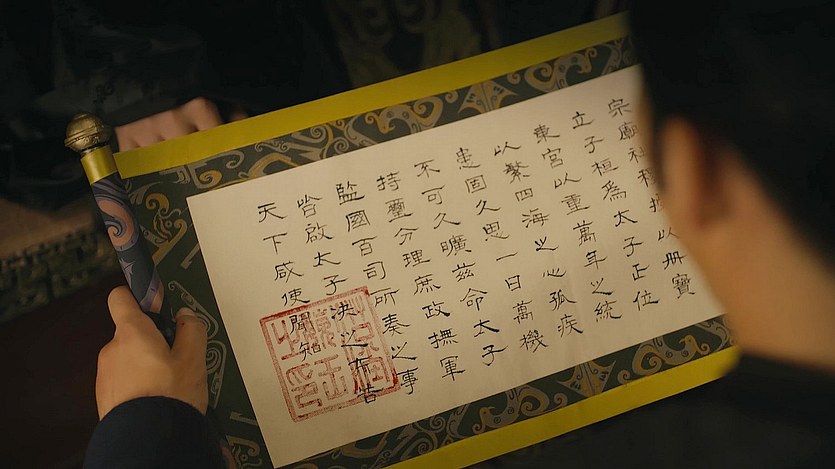 宗廟社稷以冊寶
立子桓為太子正位
東宮以重萬年之統
以繫四海之心孤疾
患固久思一日萬機
不可久曠茲命太子
持璽分理庶政撫軍
監國百司所奏之事
皆啟太子決之布告
天下咸使聞知